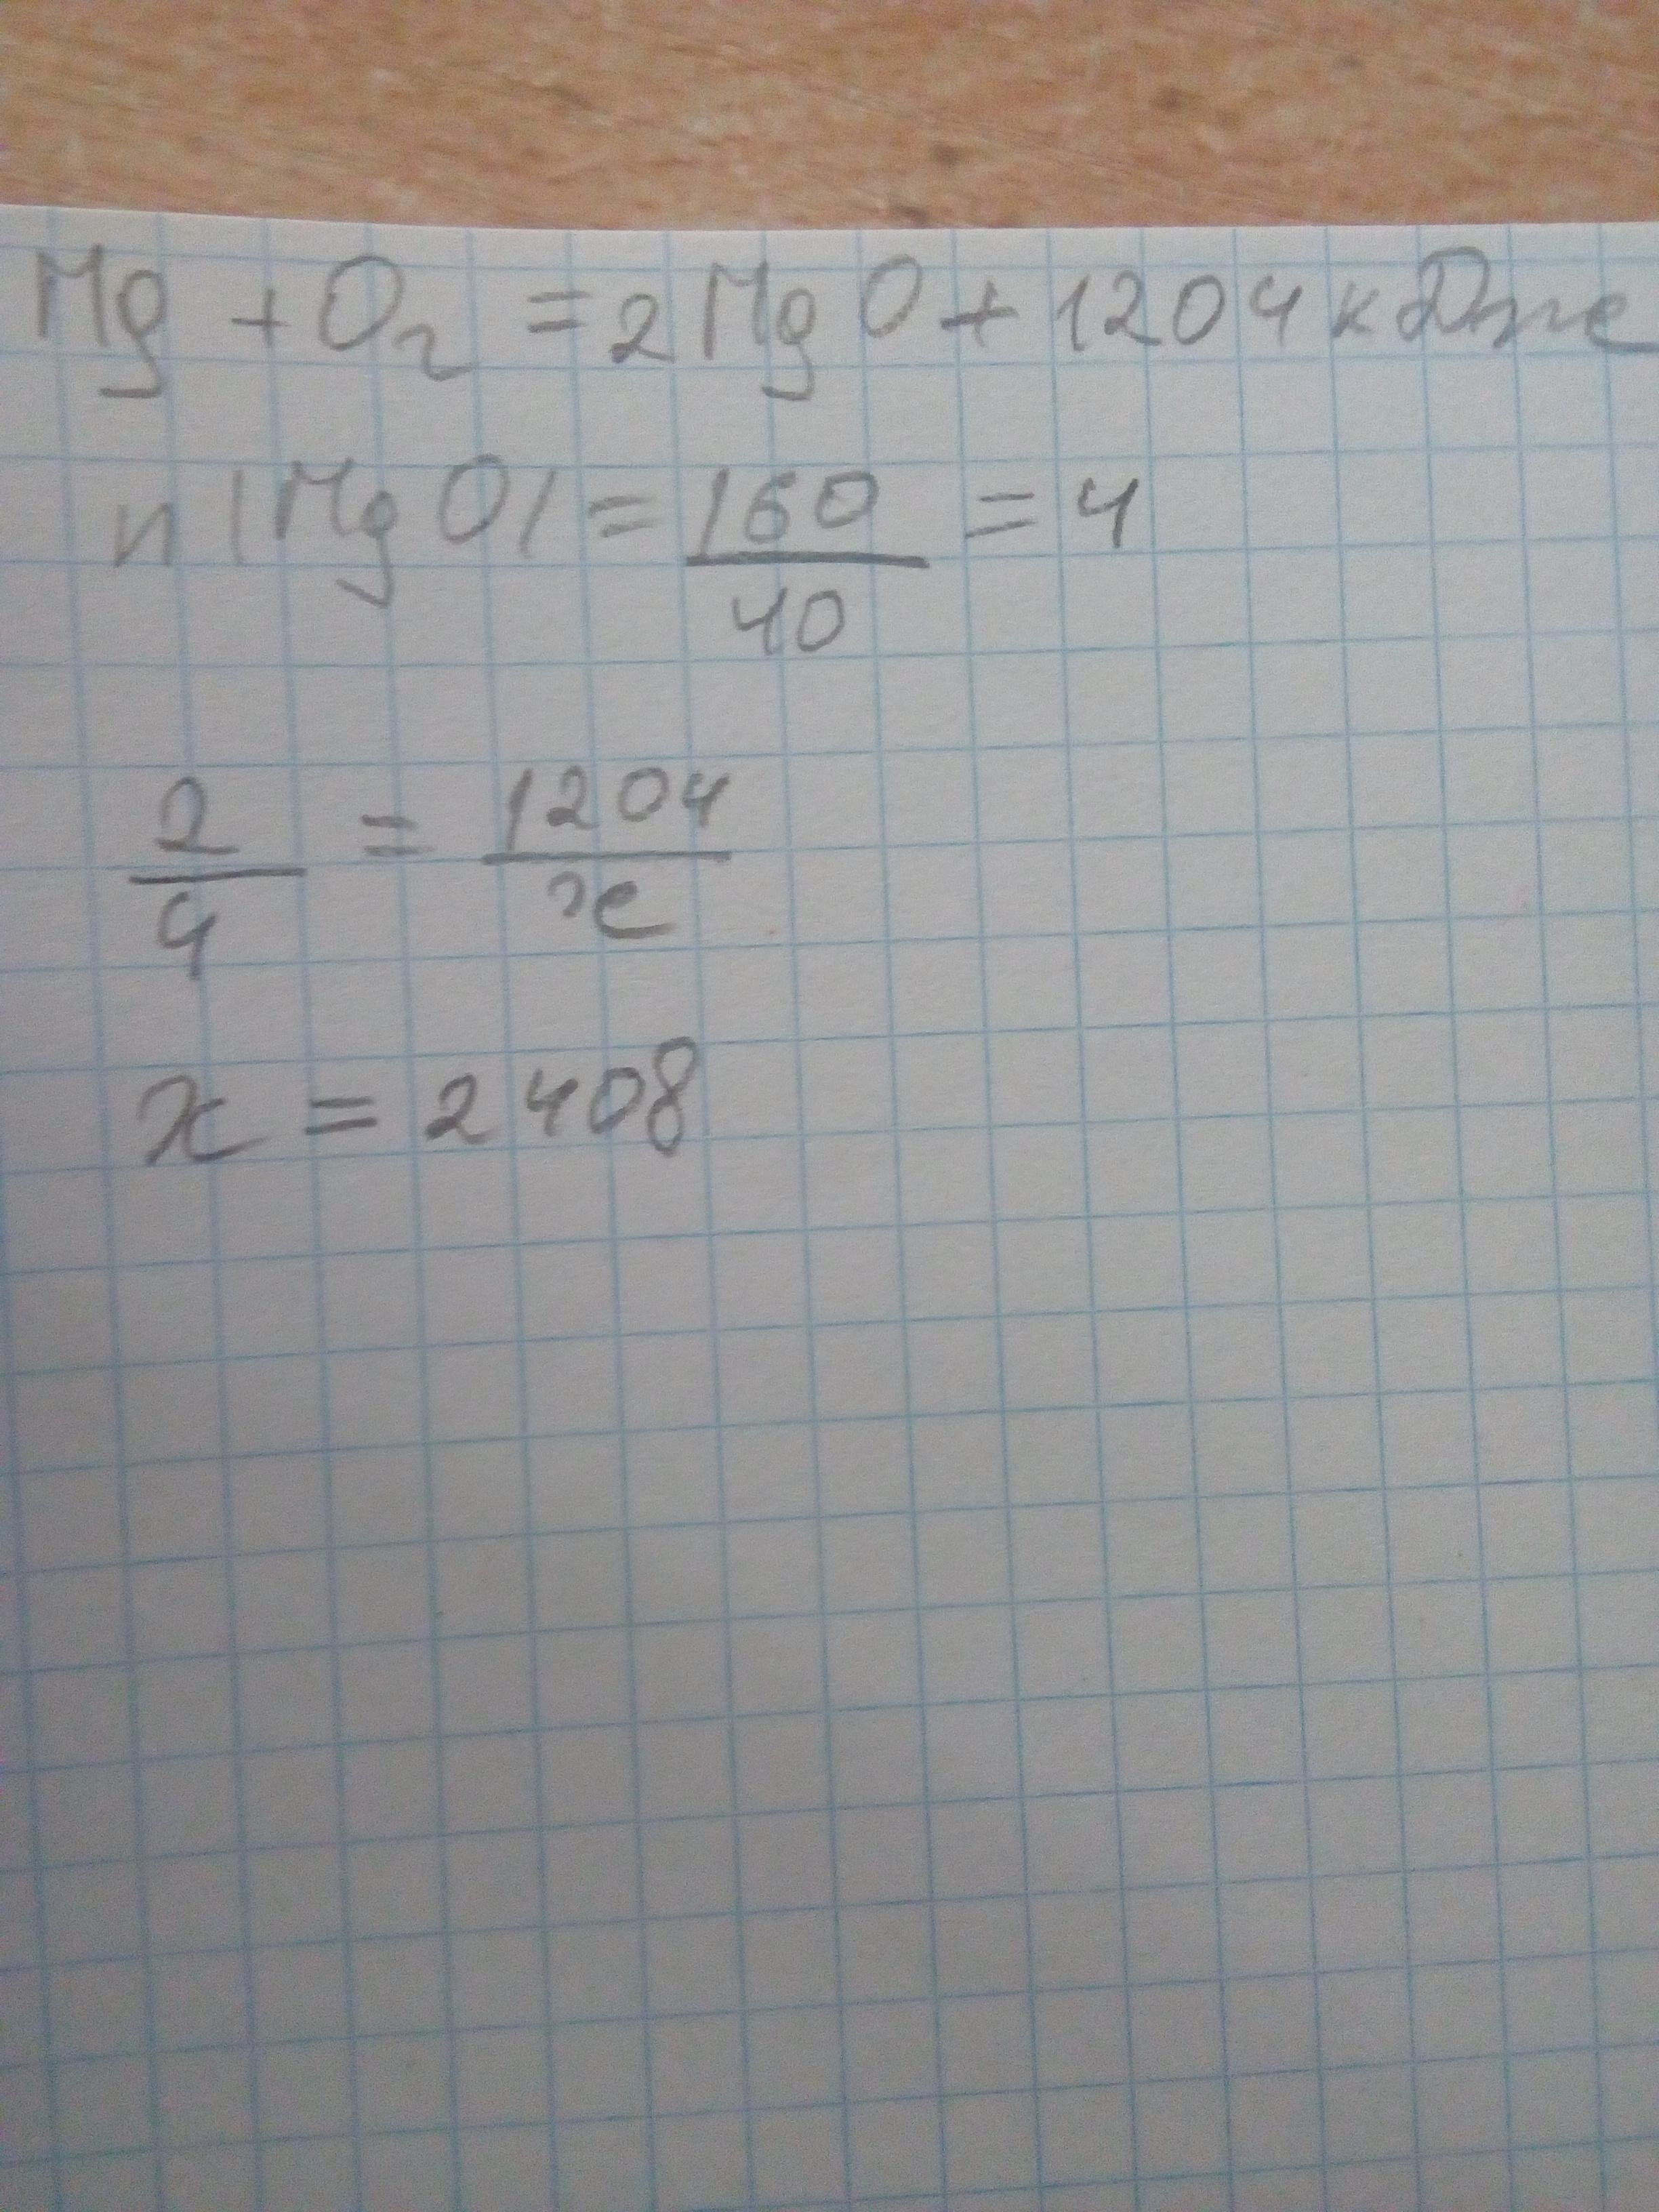 Mg + O₂ = 2MgO + 1204 кДж
n(MgO) = 160/40 = 4
2/4 = 1204/x
x = 2408